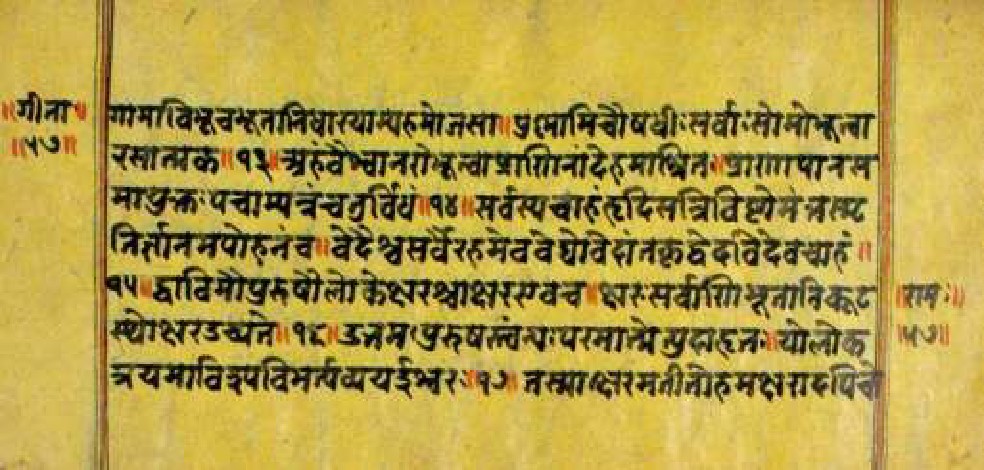 ॥गीता॥
॥५७॥
गामाविभूचभूतानिधारयाम्यहमोजसा॥पुष्णामिचौषधीःसर्वाःसोमोभूत्वा
रसात्मक॥१३॥अहंवैश्वानरोभूत्वाप्राणिनांदेहमाश्रितः॥प्राणापानस
मायुक्तःपचाम्यन्नंचतुर्विधं॥१४॥सर्वस्यचाहंहृदिसन्निविष्टोमत्तस्मृ
तिर्ज्ञानमपोहनंच॥वेदैश्चसर्वैरहमेववेद्योवेदांतकृद्वेदविदेवचाहं॥
१५॥द्वाविमौपुरुषौलोकेक्षरश्चाक्षरएवच॥क्षरःसर्वाणिभूतानिकूट
स्थोक्षरउच्यते॥१६॥उत्तमपुरुषस्त्वन्यःपरमात्मेत्युदाहृतः॥योलोक
त्रयमाविश्यविभर्त्यव्ययईश्वरः॥१७॥तस्मात्क्षरमतीतोहमक्षरादपिचो
॥रामः॥
॥५७॥